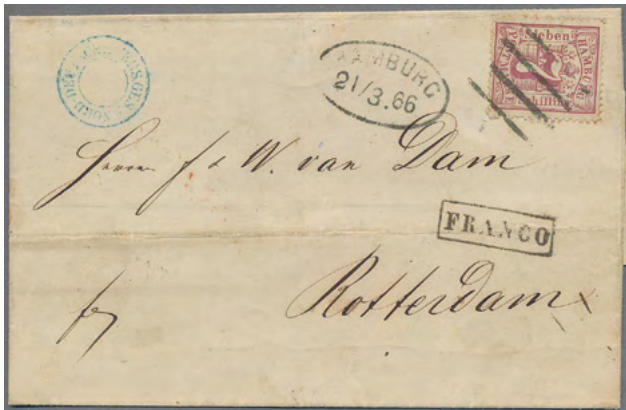 HAMBURG
21/3.66
Sieben
HAMBURG
7
Schilling
Herrn J & W. van Dam
FRANCO
Rotterdam